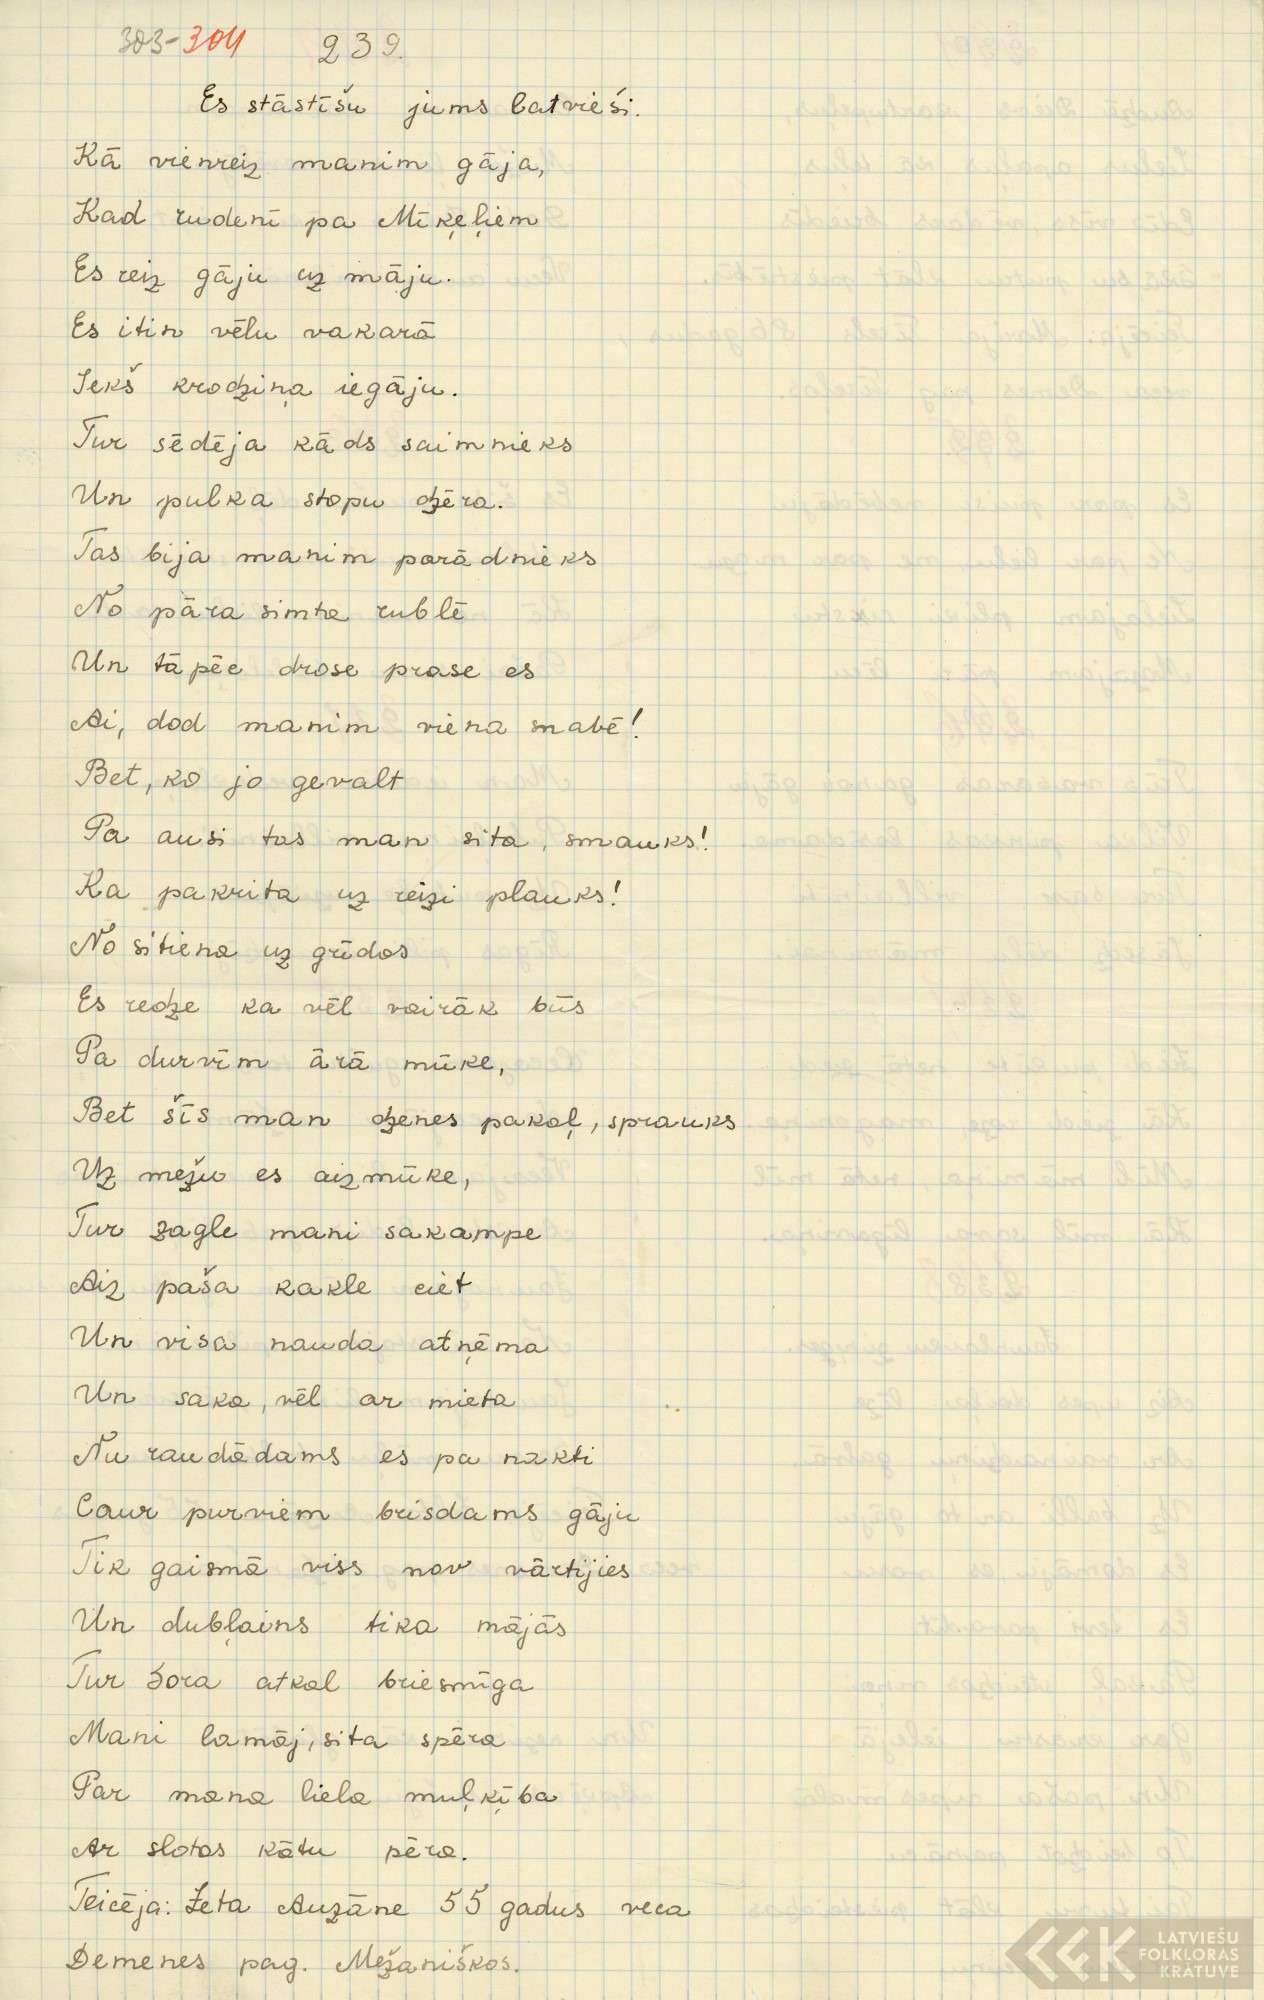 303-304 239.
Es stāstīšu jums latvieši.
Kā vienreiz manim gāja,
Kad rudenī pa Mīķeļiem
Es reiz gāju uz māju.
Es itin vēlu vakarā
Iekš krodziņa iegāju.
Tur sēdēja kāds saimnieks
Un pulka stopu dzēra.
Tas bija manim parādnieks
No pāra simta rublē
Un tāpēc drose prase es
Ai, dod manim viena snabē!
Bet, ko jo gevalt
Pa ausi tas man sita, smauks!
Ka pakrita uz reizi plauks!
No sitiena uz grīdas
Es redze ka vēl vairāk būs
Pa durvīm ārā mūke,
Bet šīs man dzenes pakaļ, sprauks
Uz mežu es aizmūke,
Tur zagle mani sakampe
Aiz paša kakle ciet
Un visa nauda atņēma
Un saka, vēl ar mieta
Nu raudādams es pa nakti
Caur purviem brisdams gāju
Tik gaismā viss nav vārtijies
Un dubļains tika mājās
Tur Sora atkal briesmīga
Mani lamāj, sita spēra
Par mana liela muļķība
Ar slotas kātu pēra.
Teicēja: Zeta Auzāne 55 gadus veca
Demenes pag. Mežaniškos.
LATVIEŠU
FOLKLORAS
KRĀTUVE